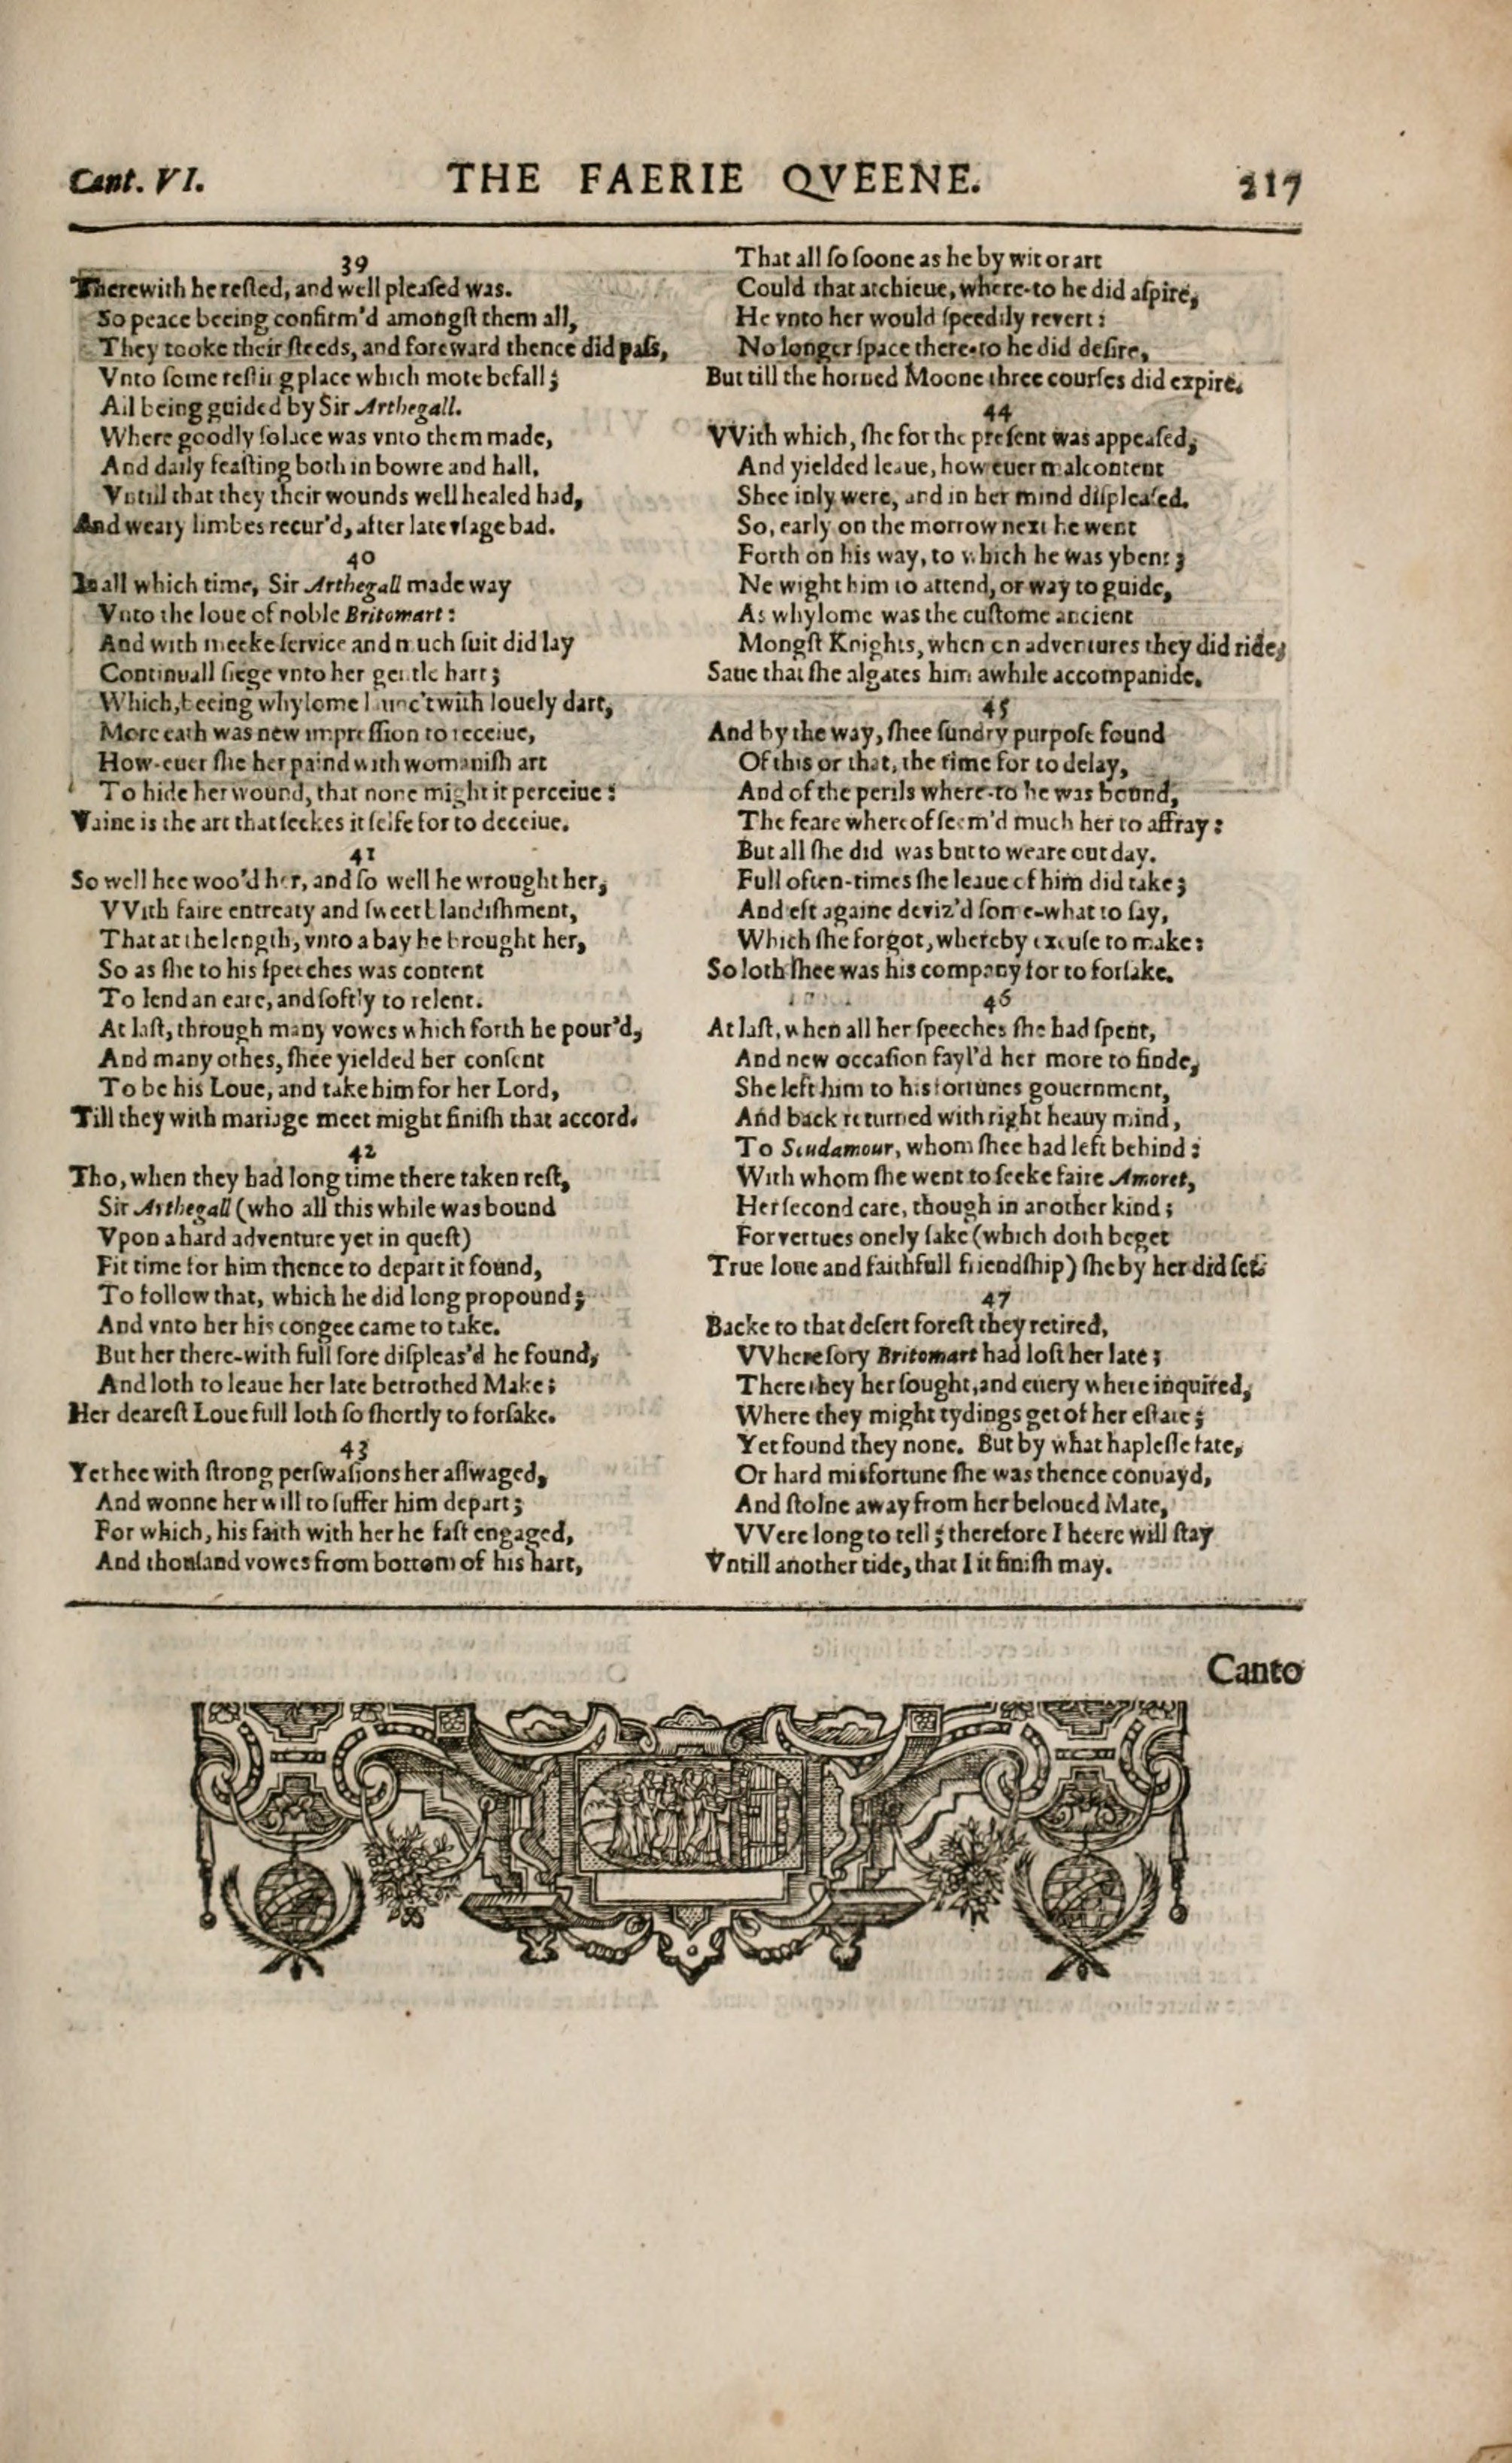 Cant. VI. THE FAERIE QVEENE. 217
39
Therewith he reſted, and well pleaſed was.
So peace beeing confirm'd amongſt them all,
They tooke their ſteeds, and foreward thence did paſs,
Vnto ſome reſting place which mote befall;
All being guided by Sir Arthegall.
Where goodly ſolace was vnto them made,
And daily feaſting both in bowre and hall,
Vntill that they their wounds well healed had,
And weary limbes recur'd, after late vſage bad.
40
In all which time, Sir Arthegall made way
Vnto the loue of noble Britomart:
And with meeke ſervice and much ſuit did lay
Continuall ſiege vnto her gentle hart;
Which, beeing whylome launc't with louely dart,
More eath was new impreſſion to receiue,
How-euer ſhe her paind with womaniſh art
To hide her wound, that none might it perceiue:
Vaine is the art that ſeekes it ſelfe for to deceiue.
41
So well hee woo'd her, and ſo well he wrought her,
VVith faire entreaty and ſweet blandiſhment,
That at the length, vnto a bay he brought her,
So as ſhe to his ſpeeches was content
To lend an eare, and ſoftly to relent.
At laſt, through many vowes which forth he pour'd,
And many othes, ſhee yielded her conſent
To be his Loue, and take him for her Lord,
Till they with mariage meet might finiſh that accord.
42
Tho, when they had long time there taken reſt,
Sir Arthegall (who all this while was bound
Vpon a hard adventure yet in queſt)
Fit time for him thence to depart it found,
To follow that, which he did long propound;
And vnto her his congee came to take.
But her there-with full ſore diſpleas'd he found,
And loth to leaue her late betrothed Make;
Her deareſt Loue full loth ſo ſhortly to forſake.
43
Yet hee with ſtrong perſwaſions her aſſwaged,
And wonne her will to ſuffer him depart;
For which, his faith with her he faſt engaged,
And thouſand vowes from bottom of his hart,
That all ſo ſoone as he by wit or art
Could that atchieue, where-to he did aſpire,
He vnto her would ſpeedily revert:
No longer ſpace there-to he did deſire,
But till the horned Moone three courſes did expire.
44
VVith which, ſhe for the preſent was appeaſed,
And yielded leaue, how euer malcontent
Shee inly were, and in her mind diſpleaſed.
So, early on the morrow next he went
Forth on his way, to which he was ybent;
Ne wight him to attend, or way to guide,
As whylome was the cuſtome ancient
Mongſt Knights, when on adventures they did ride,
Saue that ſhe algates him awhile accompanide.
45
And by the way, ſhee ſundry purpoſe found
Of this or that, the time for to delay,
And of the perils where-to he was bound,
The feare whereof ſeem'd much her to affray:
But all ſhe did was but to weare out day.
Full often-times ſhe leaue of him did take;
And eft againe deviz'd ſome-what to ſay,
Which ſhe forgot, whereby excuſe to make:
So loth ſhee was his company for to forſake.
46
At laſt, when all her ſpeeches ſhe had ſpent,
And new occaſion fayl'd her more to finde,
She left him to his fortunes gouernment,
And back returned with right heauy mind,
To Scudamour, whom ſhee had left behind:
With whom ſhe went to ſeeke faire Amoret,
Her ſecond care, though in another kind;
For vertues onely ſake (which doth beget
True loue and faithfull friendſhip) ſhe by her did ſet.
47
Backe to that deſert foreſt they retired,
VVhere ſory Britomart had loſt her late;
There they her ſought, and euery where inquired,
Where they might tydings get of her eſtate;
Yet found they none. But by what hapleſſe fate,
Or hard misfortune ſhe was thence convayd,
And ſtolne away from her beloued Mate,
VVere long to tell; therefore I heere will ſtay
Vntill another tide, that I it finiſh may.
Canto